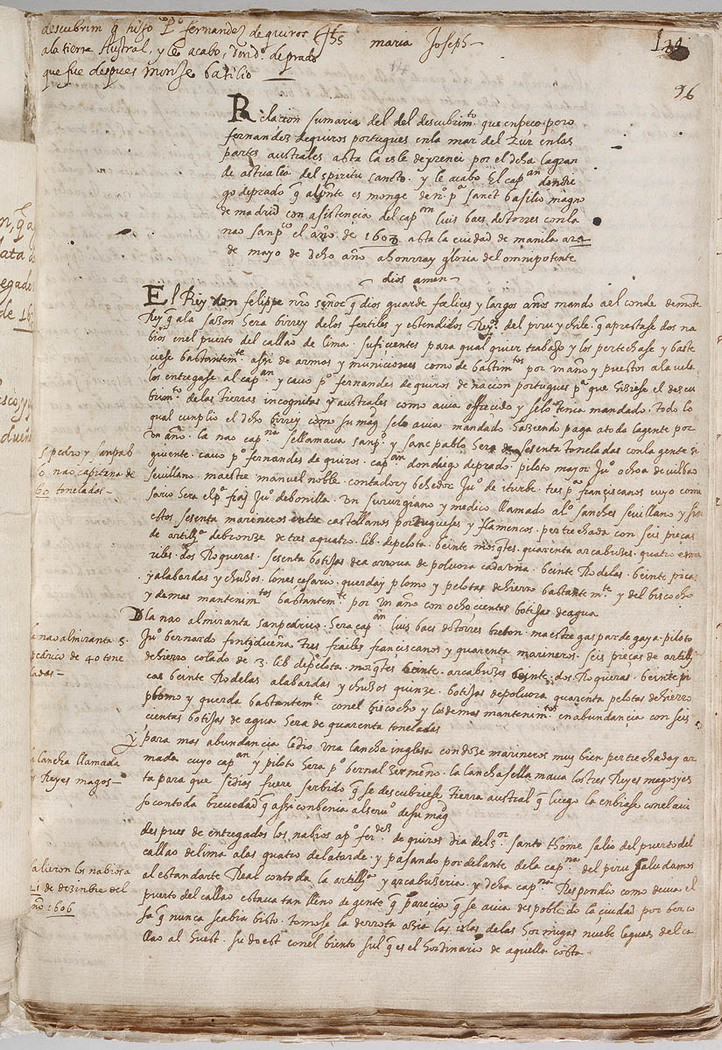 descubrim q̃ hiso Po fernandez de quiros
a la tierra Austral, y le acabo, don do de prado
que fue despues monje basilio
Jhs maria Joseph
96
Relacion sumaria del del descubrimto que enpeço pero
fernandez de quiros portugues en la mar del zur en las
partes australes asta la isla de y le nombro por el dcha la gran
de australia del spiritu sancto. y le acabo El capan don die
go de prado q̃ al prste es monge de nro pe sanct basilio magno
de madrid con asistencia del capan luis baes de torres con la
nao san po el año de 1607 asta la ciudad de manila a 22
de mayo de dcho año a honrra y gloria del omnipotente
dios amen
El Rey don felippe nro señor q̃ dios guarde felices y largos años mando a el conde de monte
Rey q̃ a la sazon hera birrey de los fertiles y estendidos Reynos del piru y chile q̃ aprestase dos na
bios en el puerto del callao de lima. suficientes para qual quier trabajo y los pertechase y baste
ciese bastantemte assi de armas y municiones como de bastimtos por un año y puestos a la vela
los entregase al capan y cauo po fernandes de quiros de nacion portugues pa que hisiese el descu
brimto de las tierras incognitas y australes como auia offrecido y se lo tenia mandado. todo lo
qual cunplio el dcho birrey como su magd se lo auia mandado haziendo paga a toda la gente por
un año. la nao capna se llamaua san po y sanc pablo hera de sesenta toneladas con la gente si
guiente. cauo po fernandes de quiros. capan don diego de prado. piloto mayor Juo ochoa de vilbao
sevillano. maestre manuel noble. contador y behedor Juo de iturbe. tres pes franciscanos cuyo comi
sario hera el pe fraj Juo de bonilla. un sururgiano y medico llamado alo sanches sevillano y sin
estos sesenta marineros entre castellanos portugueses y flamencos. pertrechada con seis pieças
de artillia de bronze de tres a quatro lib. de pelota. beinte mosqtes. quarenta arcabuzes. quatro esme
riles. dos falqueras. sesenta botijas de a arroua de poluora cada una. beinte Rodelas. beinte picas
y alabardas y chusos. lo neçesario. querda y plomo y pelotas de hierro bastantemte y del biscocho
y demas mantenimtos bastantemte por un año con ochocientas botijas de agua
s. pedro y san pab
o nao capitana de
60 toneladas
De la nao almiranta san pedrico. hera capan luis baes de torres breton. maestre gaspar de gaya. piloto
Juo bernardo fontidueña. tres frailes franciscanos y quarenta marineros. seis pieças de artillia
de hierro colado de 3. lib de pelota. mosqtes beinte. arcabuzes beinte. dos falqueras. beinte pi
cas beinte Rodelas alabardas y chusos quinze. botijas de poluora quarenta pelotas de hierro
plomo y querda bastantemte con el biscocho y los demas mantenimtos en abundancia con seis
cientas botijas de agua hera de quarenta toneladas
la nao almiranta s.
pedrico de 40 tone
ladas
y para mas abundancia le dio una lancha inglesa con doze marineros muy bien pertrechada y ar
mada cuyo capan y piloto hera po bernal sermeño. la lancha se llamaua los tres Reyes magos y es
ta para que si dios fuere serbido q̃ se descubriese tierra austral q̃ luego la enbiase con el aui
so con toda breuedad q̃ assi conbenia al seruo de su magd
la lancha llamada
os Reyes magos
despues de entregados los nabios a po ferdes de quiros dia del sor santo thome salio del puerto del
callao de lima a las quatro de la tarde y pasando por delante de la capna del piru saludamos
al estandarte Real con toda la artillia y arcabuseria y dcha capna Respondio como deuia el
puerto del callao estaua tan lleno de gente q̃ parecia q̃ se auia despoblado la ciudad por ber co
sa q̃ nunca se abia bisto. tomose la derrota asia las islas de las hormigas nuebe leguas del ca
llao al huest. sudoest con el biento sul q̃ es el hordinario de aquella costa
salieron los nabios a
21 de dezienbre del
año 1606